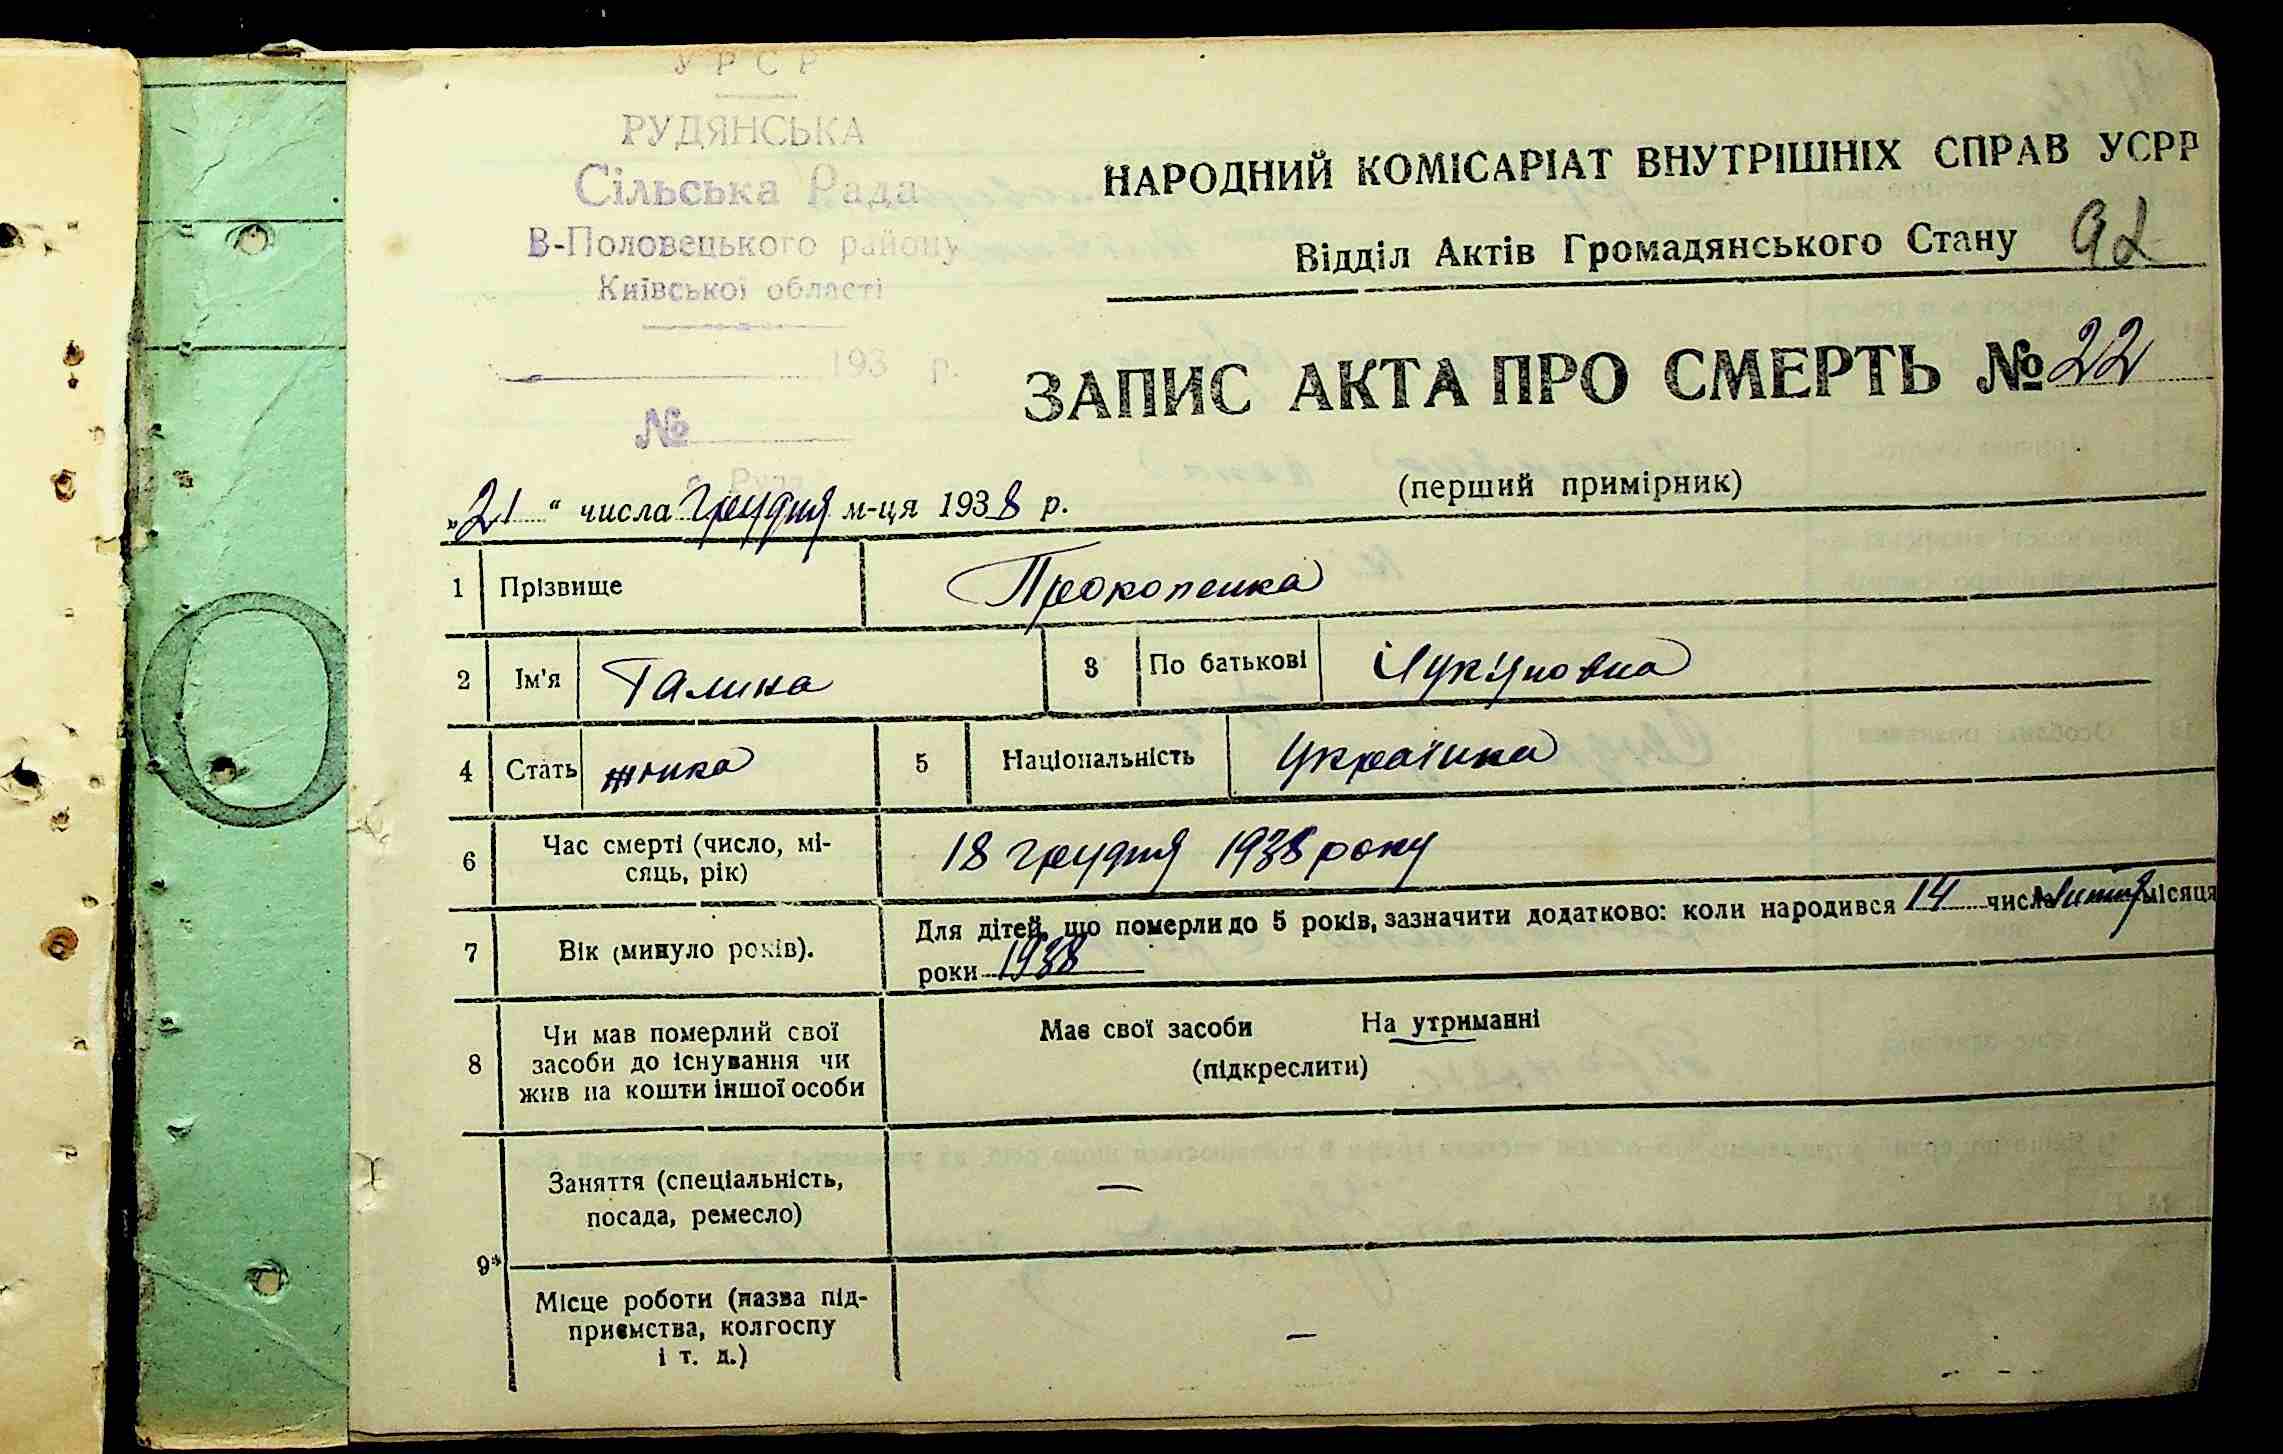 УРСР
РУДЯНСЬКА
Сільська Рада
В-Половецького району
Київської області
193 р.
№
с. Руда
НАРОДНИЙ КОМІСАРІАТ ВНУТРІШНІХ СПРАВ УСРР
Відділ Актів Громадянського Стану
ЗАПИС АКТА ПРО СМЕРТЬ № 22
(перший примірник)
„21“ числа грудня м-ця 1938 р.
1 Прізвище Прокопенка
2 Ім'я Галина 3 По батькові
4 Стать жінка 5 Національність Українка
6 Час смерті (число, мі-
сяць, рік) 18 грудня 1938 року
7 Вік (минуло років). Для дітей, що померли до 5 років, зазначити додатково: коли народився 14 числа місяця
роки 1938
8 Чи мав померлий свої
засоби до існування чи
жив на кошти іншої особи
Має свої засоби На утриманні
(підкреслити)
9* Заняття (спеціальність,
посада, ремесло) —
Місце роботи (назва під-
приємства, колгоспу
і т. д.) —